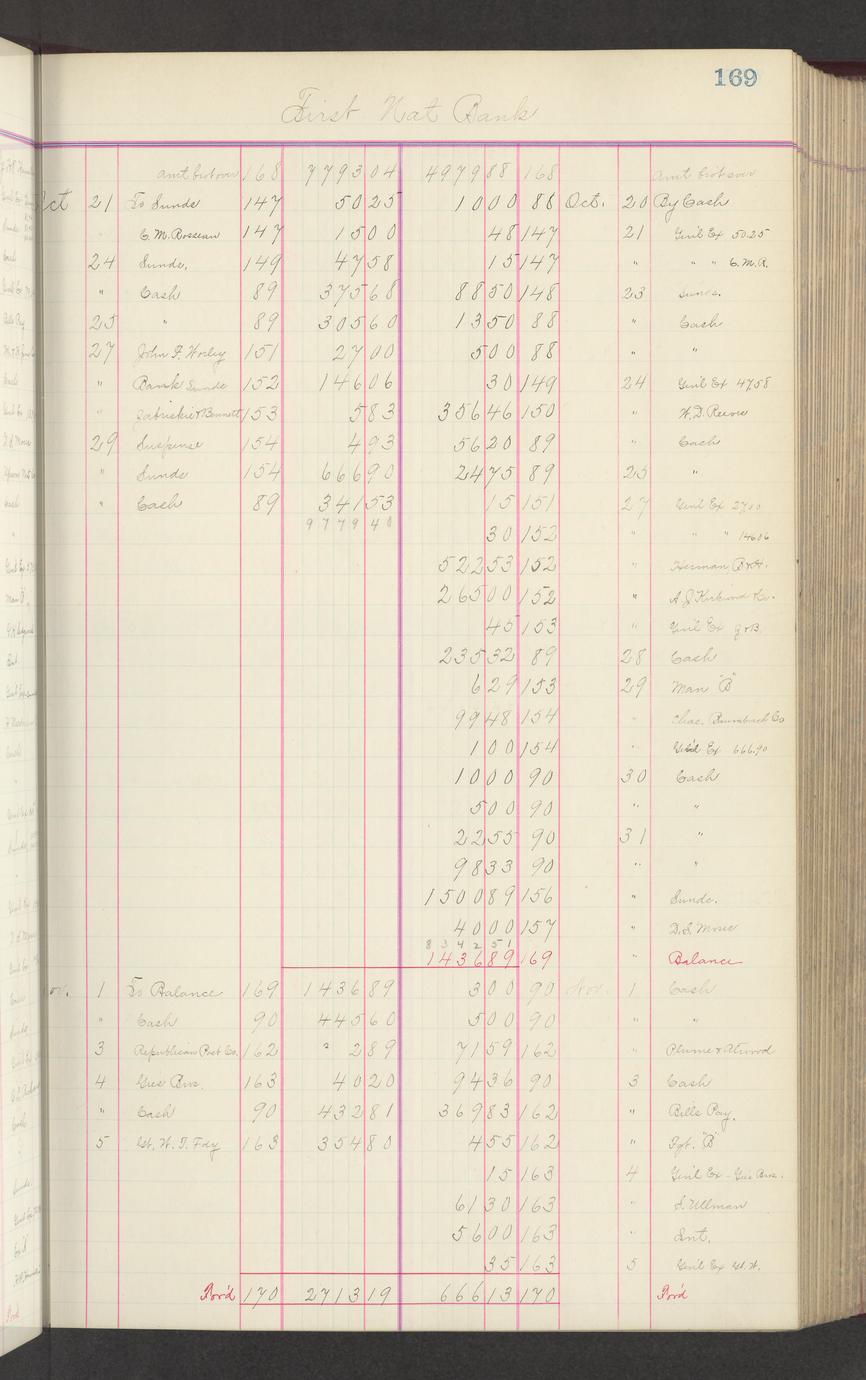 169
First Nat Bank
amt brot over 168 7793 04 4979 88 168 amt brot over
Oct 21 To Sunds 147 50 25 10 00 88 Oct. 20 By Cash
C. M. Rosseau 147 15 00 48 147 21 Gen'l Ex 50.25
24 Sunds. 149 47 58 15 147 " " " C. M. R.
" Cash 89 375 68 88 50 148 23 Sunds.
25 " 89 305 60 13 50 88 " Cash
27 John F. Worley 151 27 00 5 00 88 " "
" Bank Sunds 152 146 06 30 149 24 Gen'l Ex 47.58
" Zabriskie & Bennett 153 5 83 356 46 150 " W. D. Reeves
29 Suspense 154 4 93 56 20 89 " Cash
" Sunds 154 666 90 24 75 89 25 "
" Cash 89 341 53 15 151 27 Gen'l Ex 27.00
9779 40 30 152 " " " 146.06
522 53 152 " Herman, B & H.
265 00 152 " A. J. Kirkwood & Co.
45 153 " Gen'l Ex Z & B.
235 32 89 28 Cash
6 29 153 29 Man "B"
99 48 154 " Chas. Brumbach Co
1 00 154 " Gen'l Ex 666.90
10 00 90 30 Cash
5 00 90 " "
22 55 90 31 "
98 33 90 " "
1500 89 156 " Sunds.
40 00 157 " D. S. Morse
8342 51
1436 89 169 " Balance
Nov. 1 To Balance 169 1436 89 3 00 90 Nov. 1 Cash
" Cash 90 445 60 5 00 90 " "
3 Republican Post Co. 162 2 89 71 59 162 " Plume & Atwood
4 Gies Bros. 163 40 20 94 36 90 3 Cash
" Cash 90 432 81 369 83 162 " Bills Pay.
5 Gt. W. T. Fdy 163 354 80 4 55 162 " Fgt. "B"
15 163 4 Gen'l Ex - Gies Bros.
61 30 163 " S. Ullman
56 00 163 " Int.
35 163 5 Gen'l Ex Gt. W.
For'd 170 2713 19 666 13 170 For'd